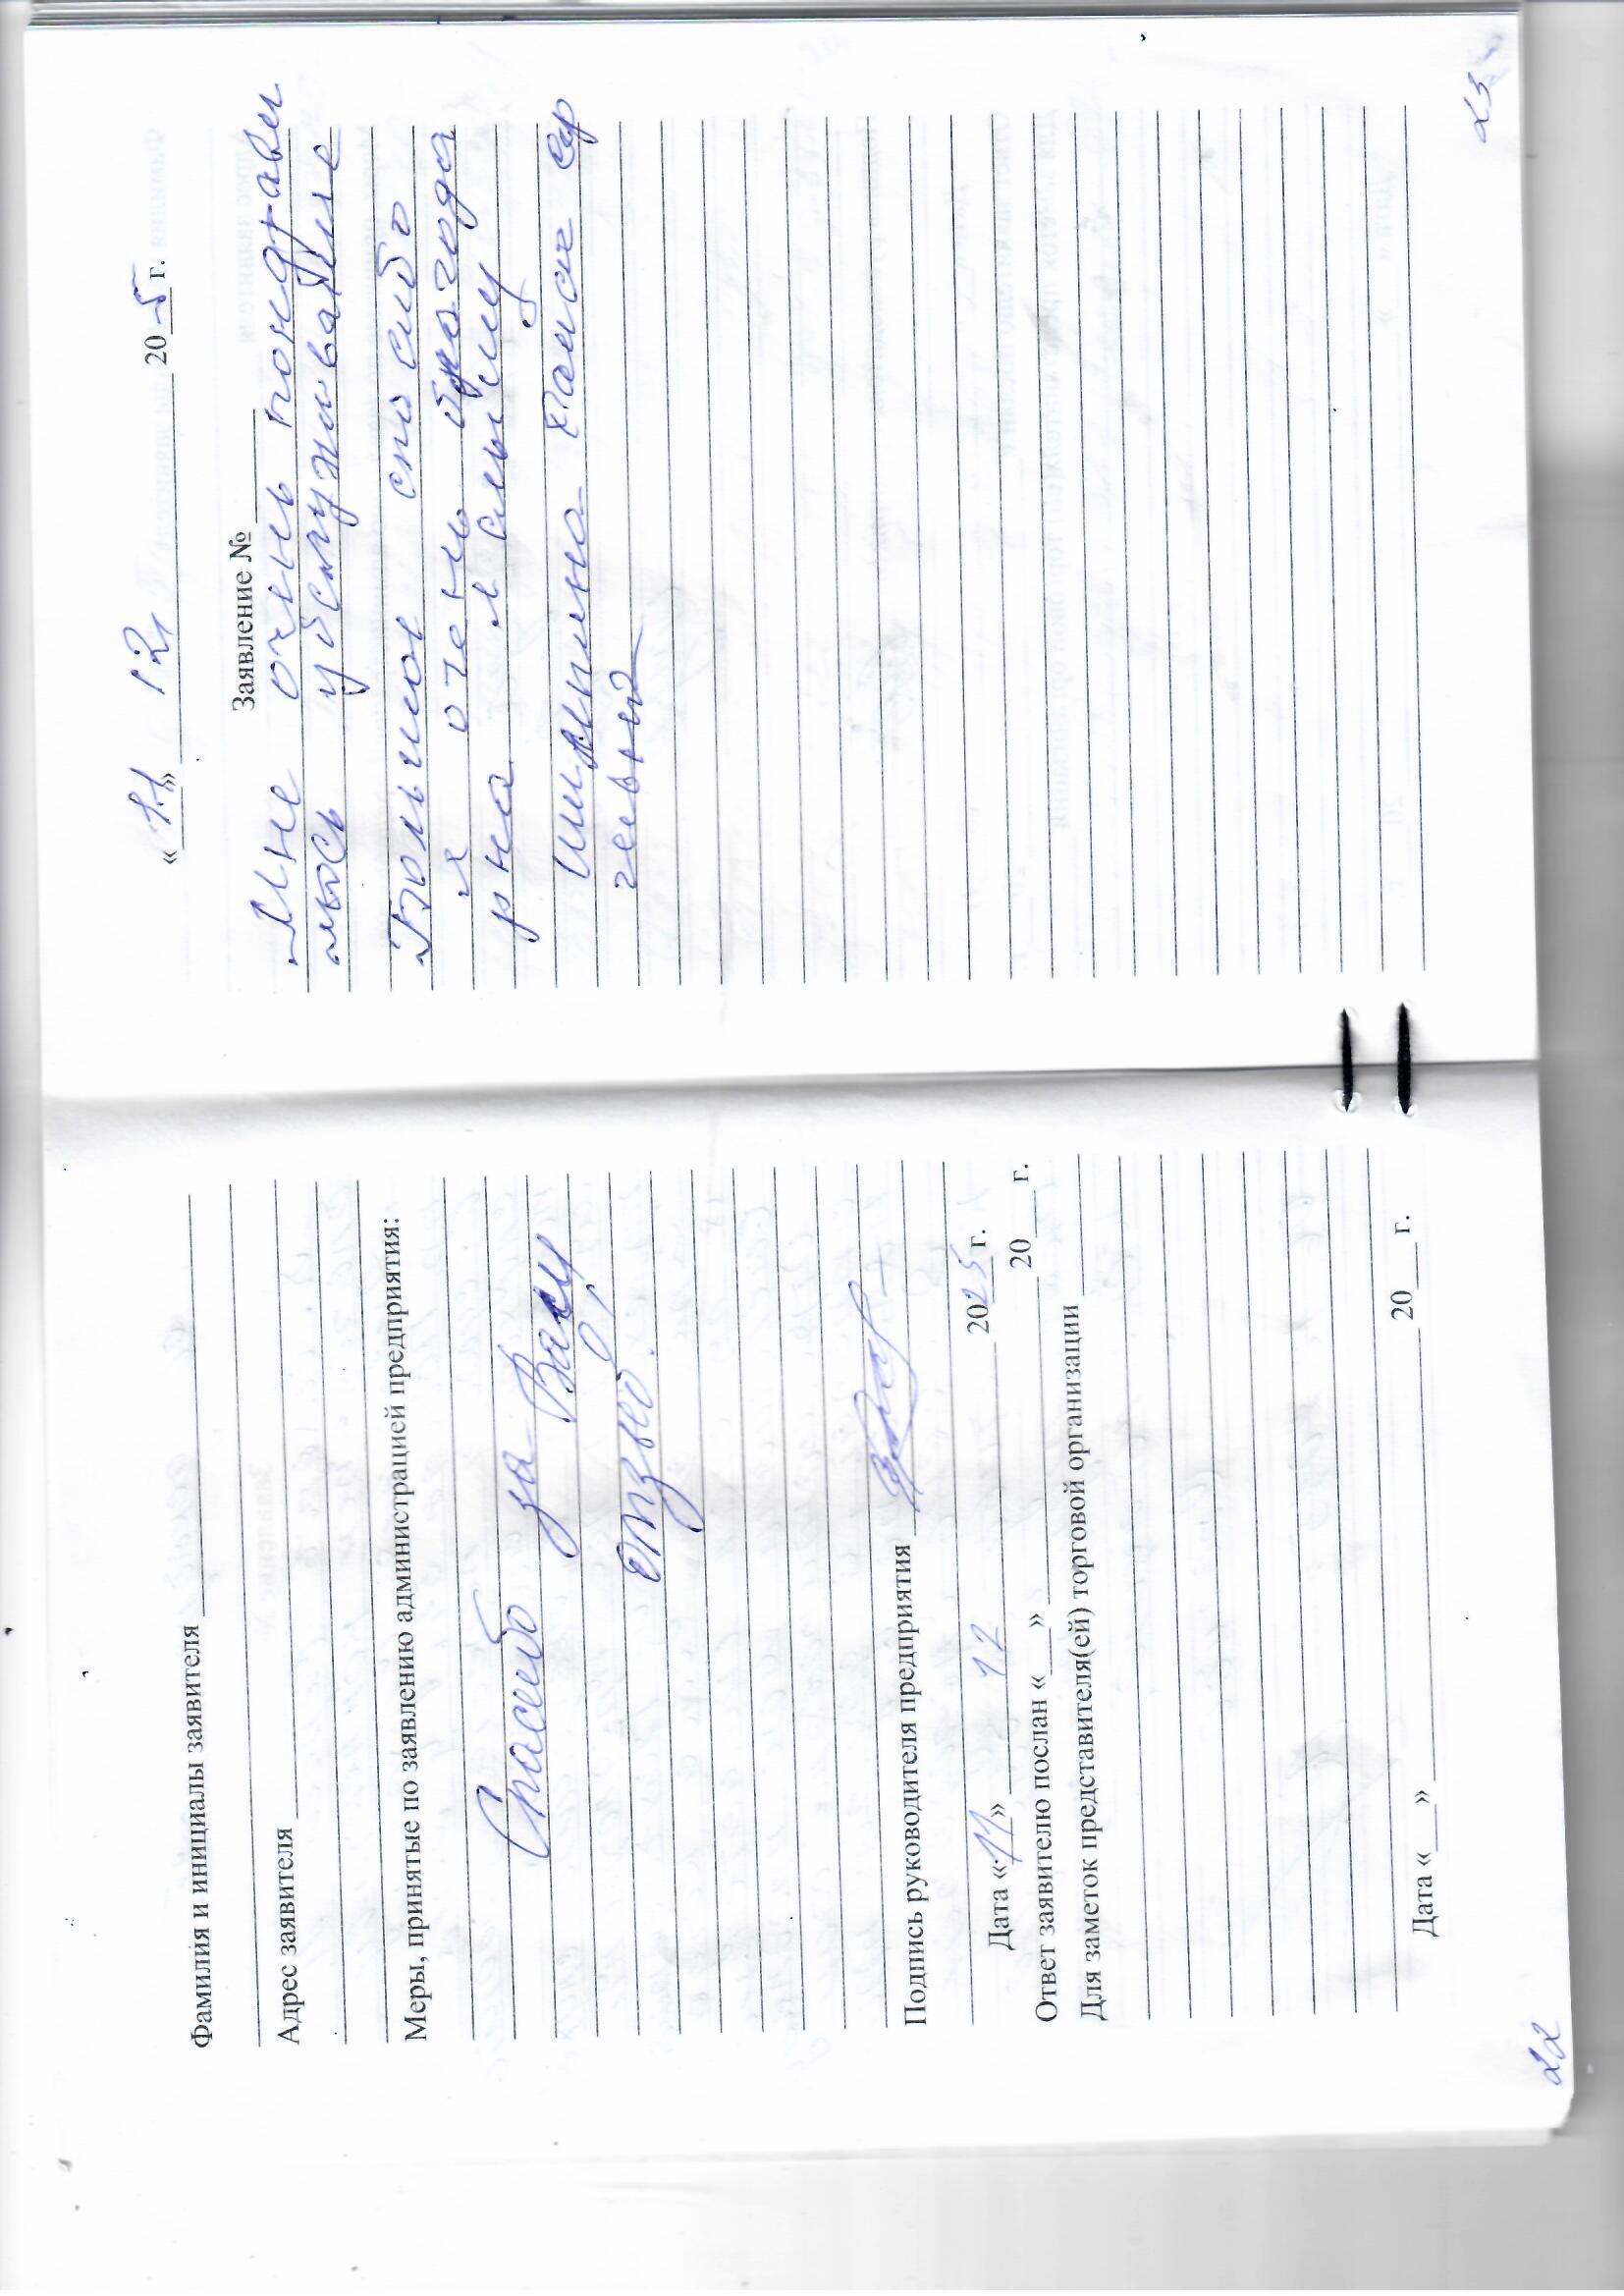 Фамилия и инициалы заявителя
Адрес заявителя
Меры, принятые по заявлению администрацией предприятия:
Спасибо за Ваш
отзыв!
Подпись руководителя предприятия
Дата «11» 12 2025 г.
Ответ заявителю послан «___» 20___ г.
Для заметок представителя(ей) торговой организации
Дата «___» 20___ г.
22
«11» 12 20 5 г.
Заявление №
Мне очень пондрави
лось убслуживание
Большое спосибо
я очень благода
рна
23